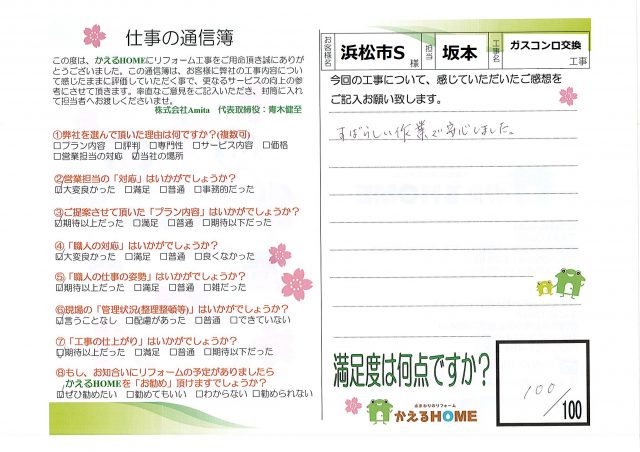 仕事の通信簿
この度は、かえるHOMEにリフォーム工事をご用命頂き誠にありが
とうございました。この通信簿は、お客様に弊社の工事内容につい
て感じたままに評価していただく事で、更なるサービスの向上の参
考にさせて頂きます。率直なご意見をご記入いただき、封筒に入れ
て担当者へお渡しくださいませ。
株式会社Amita 代表取締役：青木健至
①弊社を選んで頂いた理由は何ですか？(複数可)
□プラン内容 □評判 □専門性 □サービス内容 □価格
□営業担当の対応 ☑当社の場所
②営業担当の「対応」はいかがでしょうか？
☑大変良かった □満足 □普通 □事務的だった
③ご提案させて頂いた「プラン内容」はいかがでしょうか？
☑期待以上だった □満足 □普通 □期待以下だった
④「職人の対応」はいかがでしょうか？
☑大変良かった □満足 □普通 □良くなかった
⑤「職人の仕事の姿勢」はいかがでしょうか？
☑大変良かった □満足 □普通 □雑だった
⑥現場の「管理状況(整理整頓等)」はいかがでしょうか？
☑言うことなし □配慮があった □普通 □できていない
⑦「工事の仕上がり」はいかがでしょうか？
☑期待以上だった □満足 □普通 □期待以下だった
⑧もし、お知合いにリフォームの予定がありましたら
かえるHOMEを「お勧め」頂けますでしょうか？
☑ぜひ勧めたい □勧めてもいい □わからない □勧められない
お客様名 浜松市S 様 担当 坂本 工事名 ガスコンロ交換 工事
今回の工事について、感じていただいたご感想を
ご記入お願い致します。
すばらしい作業で安心しました。
満足度は何点ですか？
100
/100
水まわりのリフォーム
かえるHOME